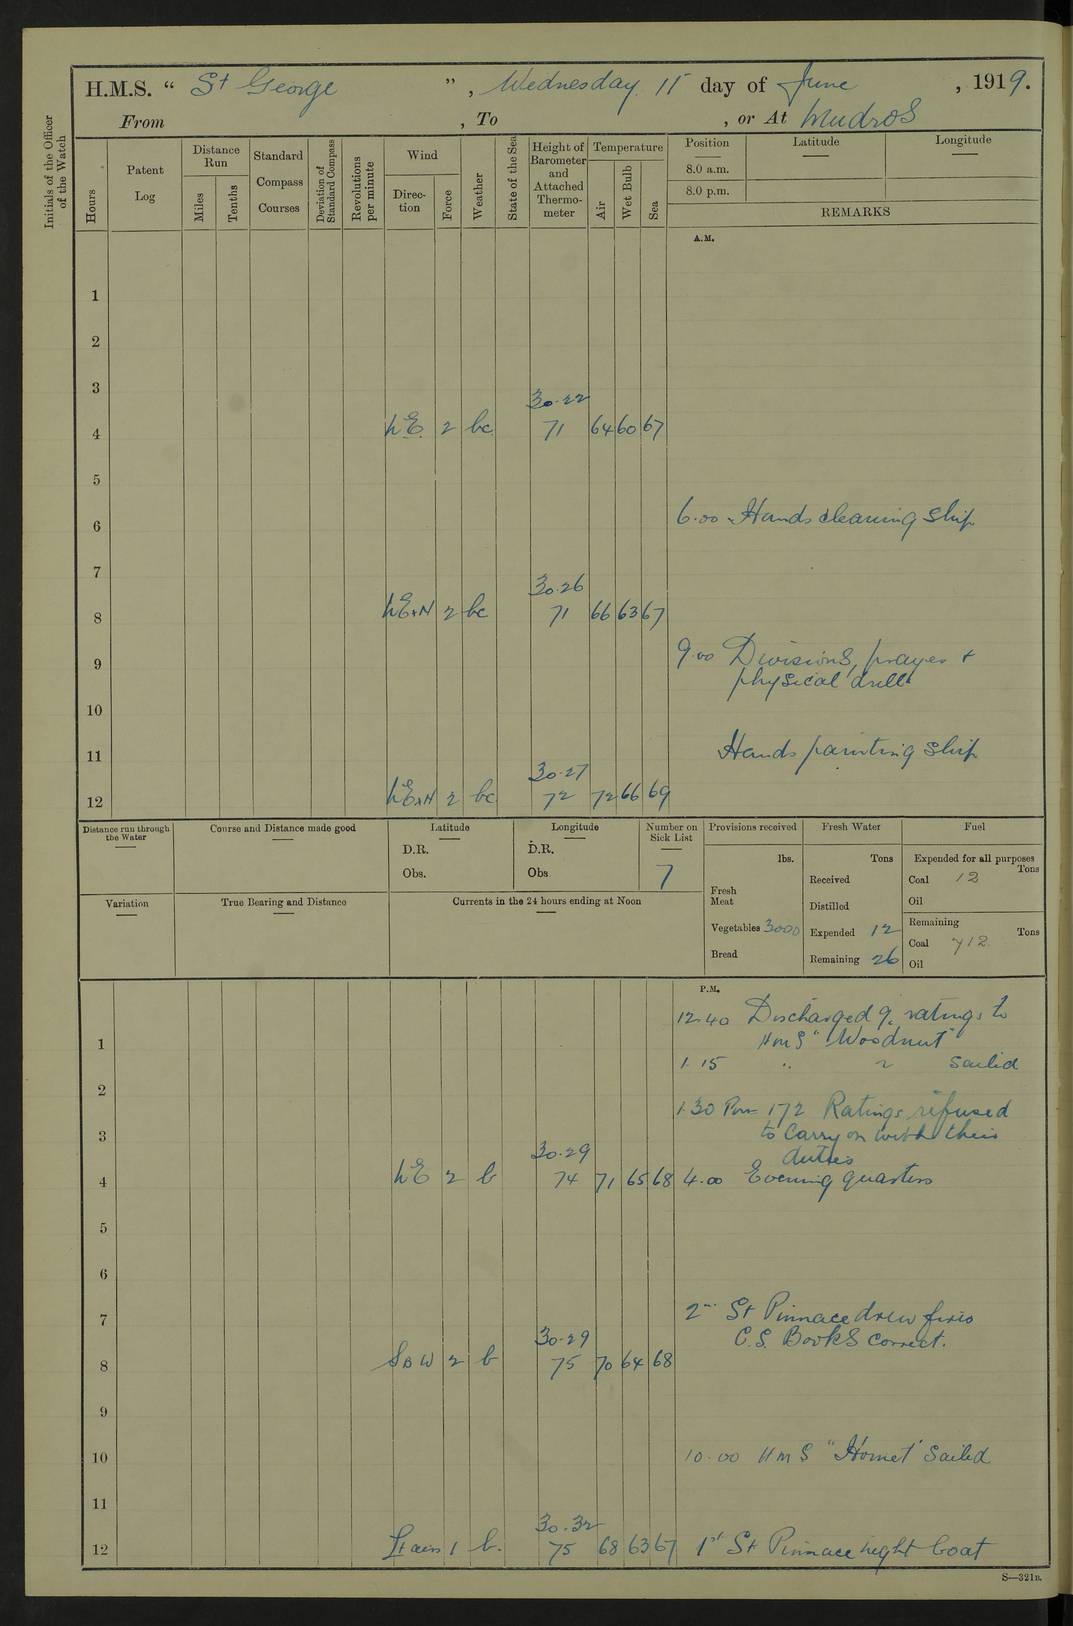 H.M.S. “ St George ”, Wednesday 11 day of June, 1919.
From , To , or At Mudros
Initials of the Officer of the Watch
Hours
Patent Log
Distance Run
Miles
Tenths
Standard Compass Courses
Deviation of Standard Compass
Revolutions per minute
Wind
Direction
Force
Weather
State of the Sea
Height of Barometer and Attached Thermometer
Temperature
Air
Wet Bulb
Sea
Position
Latitude
Longitude
8.0 a.m.
8.0 p.m.
REMARKS
A.M.
1
2
3
30.22
4 NE 2 bc 71 64 60 67
5
6 6.00 Hands cleaning ship
7
30.26
8 NExN 2 bc 71 66 63 67
9 9.00 Divisions, prayers +
physical drill
10
11 Hands painting ship
30.27
12 NExN 2 bc 72 72 66 69
Distance run through the Water
Course and Distance made good
Latitude
D.R.
Obs.
Longitude
D.R.
Obs
Number on Sick List
7
Provisions received
lbs.
Fresh Meat
Vegetables 3000
Bread
Fresh Water
Tons
Received
Distilled
Expended 12
Remaining 26
Fuel
Expended for all purposes
Tons
Coal 12
Oil
Remaining
Tons
Coal 712
Oil
Variation
True Bearing and Distance
Currents in the 24 hours ending at Noon
P.M.
12.40 Discharged 9 ratings to
1 HMS "Woodnut"
1.15 " " Sailed
2
1.30 Pm 172 Ratings refused
3 to carry on with their
duties
30.29
4 NE 2 b 74 71 65 68 4.00 Evening quarters
5
6
7 2nd St Pinnace drew fires
30.29 C.S. Books correct.
8 SBW 2 b 75 70 64 68
9
10 10.00 HMS "Hornet" Sailed
11
30.32
12 Lt airs 1 b. 75 68 63 67 1st St Pinnace night boat
S—321B.